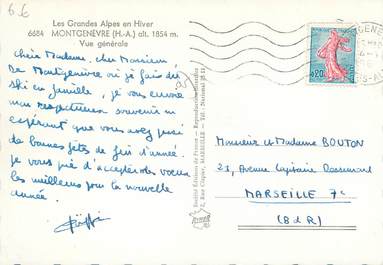 6.6
Les Grandes Alpes en Hiver
6684 MONTGENÈVRE (H.-A.) alt. 1854 m.
Vue générale
Chère Madame, cher Monsieur
De Montgenèvre où j'ai fait du
ski en famille, je vous envoie
mon respectueux souvenir en
espérant que vous avez passé
de bonnes fêtes de fin d'année.
Je vous prie d'accepter les vœux
les meilleurs pour la nouvelle
année.
Société Editions de France - Reproduction interdite
2, Rue MARSEILLE - Tél. National
0,20
Monsieur et Madame BOUTON
23, Avenue Capitaine
MARSEILLE 7e
(B d R)